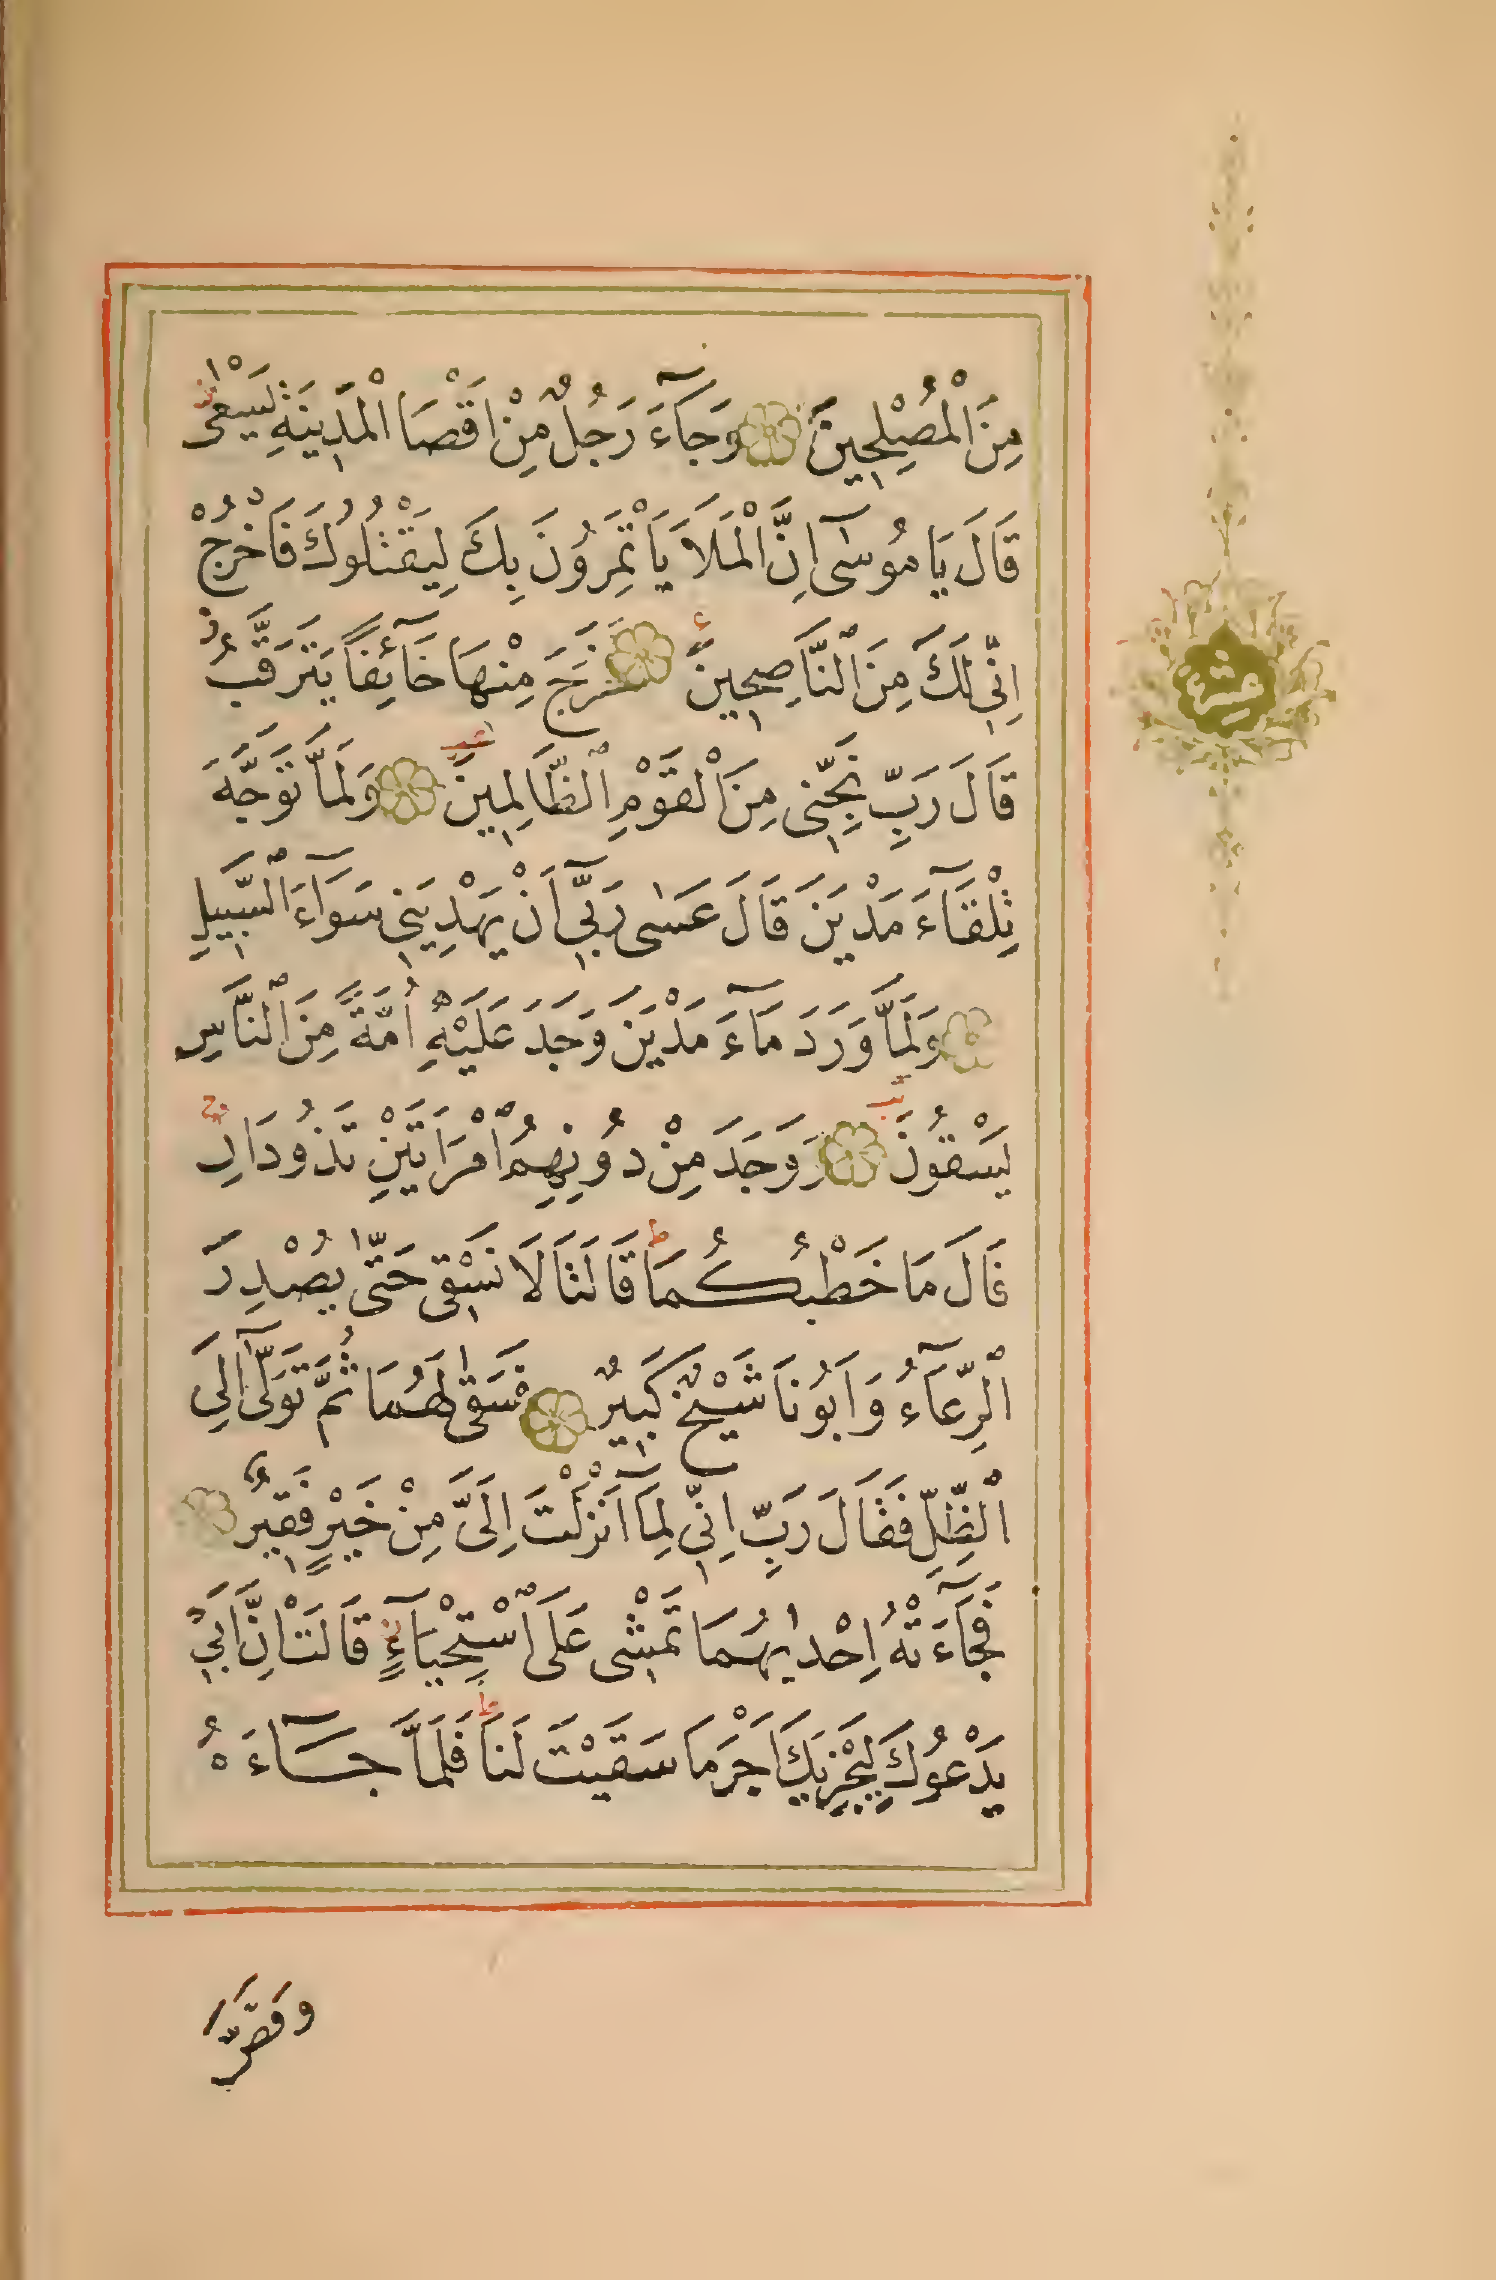 مِنَ الْمُصْلِحِينَ وَجَآءَ رَجُلٌ مِنْ اَقْصَا الْمَدِينَةِ يَسْعٰى
قَالَ يَا مُوسٰٓى اِنَّ الْمَلَاَ يَاْتَمِرُونَ بِكَ لِيَقْتُلُوكَ فَاخْرُجْ
اِنِّي لَكَ مِنَ النَّاصِحِينَ فَخَرَجَ مِنْهَا خَآئِفًا يَتَرَقَّبُ
قَالَ رَبِّ نَجِّنِي مِنَ الْقَوْمِ الظَّالِمِينَ وَلَمَّا تَوَجَّهَ
تِلْقَآءَ مَدْيَنَ قَالَ عَسٰى رَبِّٓي اَنْ يَهْدِيَنِي سَوَآءَ السَّبِيلِ
وَلَمَّا وَرَدَ مَآءَ مَدْيَنَ وَجَدَ عَلَيْهِ اُمَّةً مِنَ النَّاسِ
يَسْقُونَ وَوَجَدَ مِنْ دُونِهِمُ امْرَاَتَيْنِ تَذُودَانِ
قَالَ مَا خَطْبُكُمَا قَالَتَا لَا نَسْقِي حَتّٰى يُصْدِرَ
الرِّعَآءُ وَاَبُونَا شَيْخٌ كَبِيرٌ فَسَقٰى لَهُمَا ثُمَّ تَوَلّٰٓى اِلَى
الظِّلِّ فَقَالَ رَبِّ اِنِّي لِمَآ اَنْزَلْتَ اِلَيَّ مِنْ خَيْرٍ فَقِيرٌ
فَجَآءَتْهُ اِحْدٰيهُمَا تَمْشِي عَلَى اسْتِحْيَآءٍ قَالَتْ اِنَّ اَبِي
يَدْعُوكَ لِيَجْزِيَكَ اَجْرَ مَا سَقَيْتَ لَنَا فَلَمَّا جَآءَهُ
وَقَصَّ